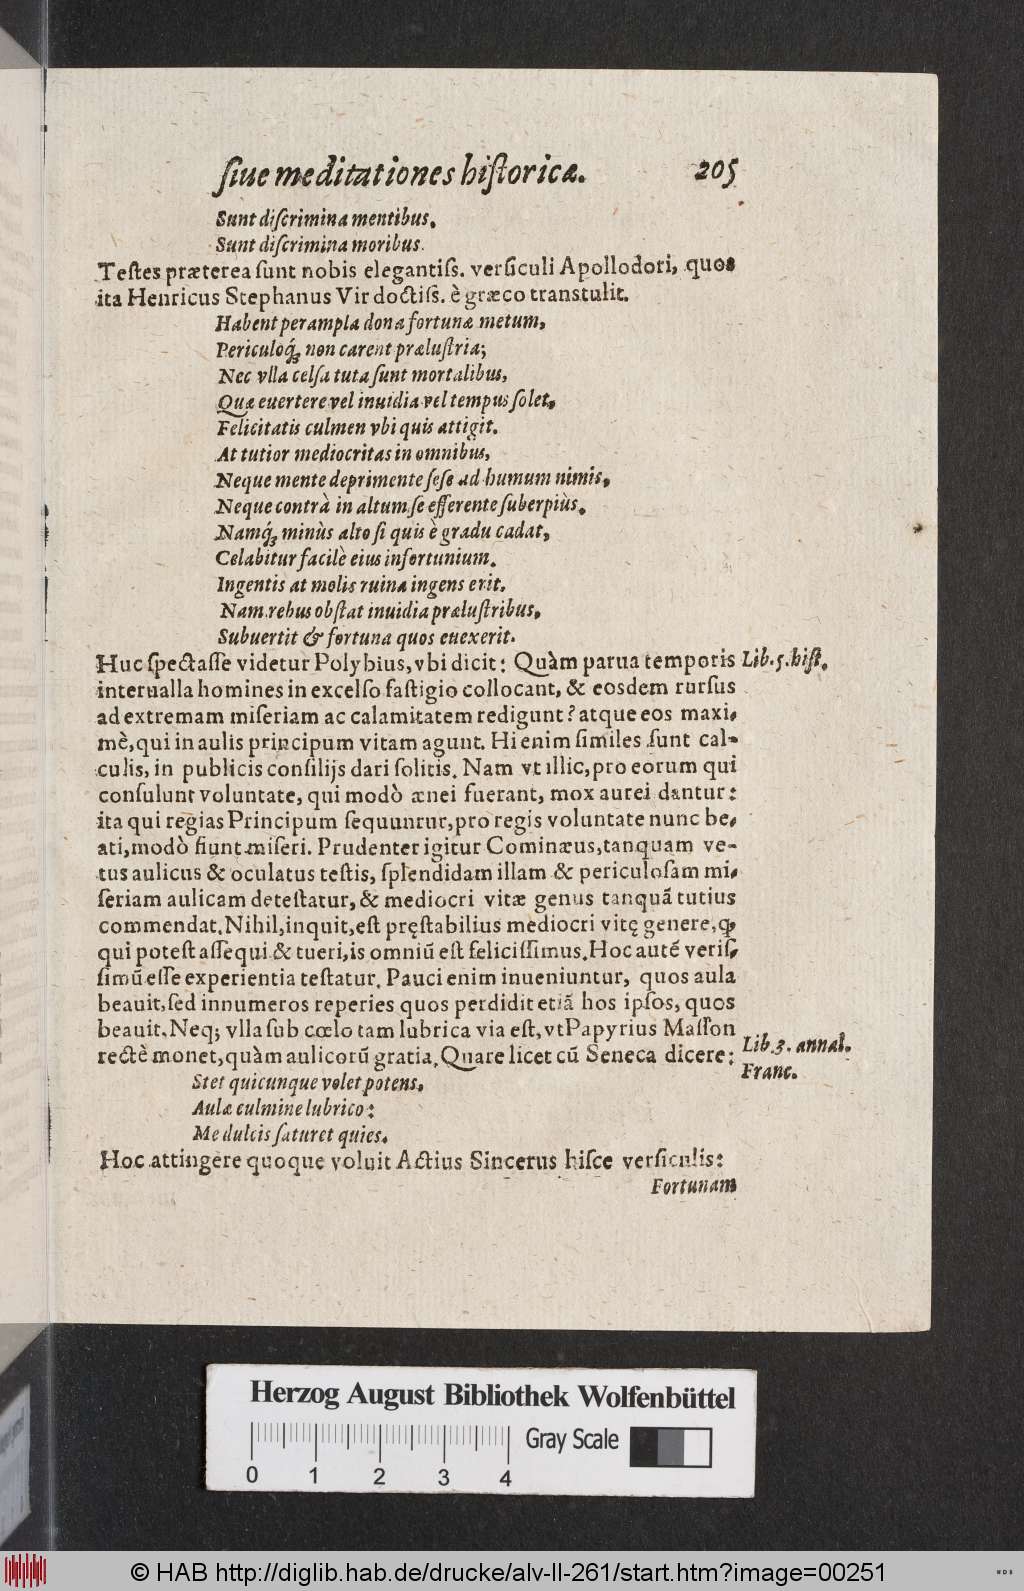 ſiue meditationes hiſtoricæ. 205
Sunt diſcrimina mentibus,
Sunt diſcrimina moribus.
Teſtes præterea ſunt nobis elegantiſs. verſiculi Apollodori, quos
ita Henricus Stephanus Vir doctiſs. è græco transtulit.
Habent perampla dona fortunæ metum,
Periculoq́; non carent præluſtria;
Nec vlla celſa tuta ſunt mortalibus,
Quæ euertere vel inuidia vel tempus ſolet,
Felicitatis culmen vbi quis attigit.
At tutior mediocritas in omnibus,
Neque mente deprimente ſeſe ad humum nimis,
Neque contrà in altum ſe efferente ſuberpiùs.
Namq́; minùs alto ſi quis è gradu cadat,
Celabitur facilè eius infortunium.
Ingentis at molis ruina ingens erit.
Nam rebus obſtat inuidia præluſtribus,
Subuertit & fortuna quos euexerit.
Huc ſpectaſſe videtur Polybius, vbi dicit: Quàm parua temporis Lib. 5. hiſt.
interualla homines in excelſo faſtigio collocant, & eosdem rurſus
ad extremam miſeriam ac calamitatem redigunt? atque eos maxi-
mè, qui in aulis principum vitam agunt. Hi enim ſimiles ſunt cal-
culis, in publicis conſilijs dari ſolitis. Nam vt illic, pro eorum qui
conſulunt voluntate, qui modò ænei fuerant, mox aurei dantur:
ita qui regias Principum ſequuntur, pro regis voluntate nunc be-
ati, modò fiunt miſeri. Prudenter igitur Cominæus, tanquam ve-
tus aulicus & oculatus teſtis, ſplendidam illam & periculoſam mi-
ſeriam aulicam deteſtatur, & mediocri vitæ genus tanquā tutius
commendat. Nihil, inquit, eſt pręſtabilius mediocri vitę genere, ꝙ
qui poteſt aſſequi & tueri, is omniū eſt feliciſſimus. Hoc autē veriſ-
ſimū eſſe experientia teſtatur. Pauci enim inueniuntur, quos aula
beauit, ſed innumeros reperies quos perdidit etiā hos ipſos, quos
beauit. Neq; vlla ſub cœlo tam lubrica via eſt, vt Papyrius Maſſon
rectè monet, quàm aulicorū gratia. Quare licet cū Seneca dicere: Lib. 3. annal.
Franc.
Stet quicunque volet potens,
Aulæ culmine lubrico:
Me dulcis ſaturet quies.
Hoc attingere quoque voluit Actius Sincerus hiſce verſiculis:
Fortunam
Herzog August Bibliothek Wolfenbüttel
0 1 2 3 4 Gray Scale
© HAB http://diglib.hab.de/drucke/alv-ll-261/start.htm?image=00251